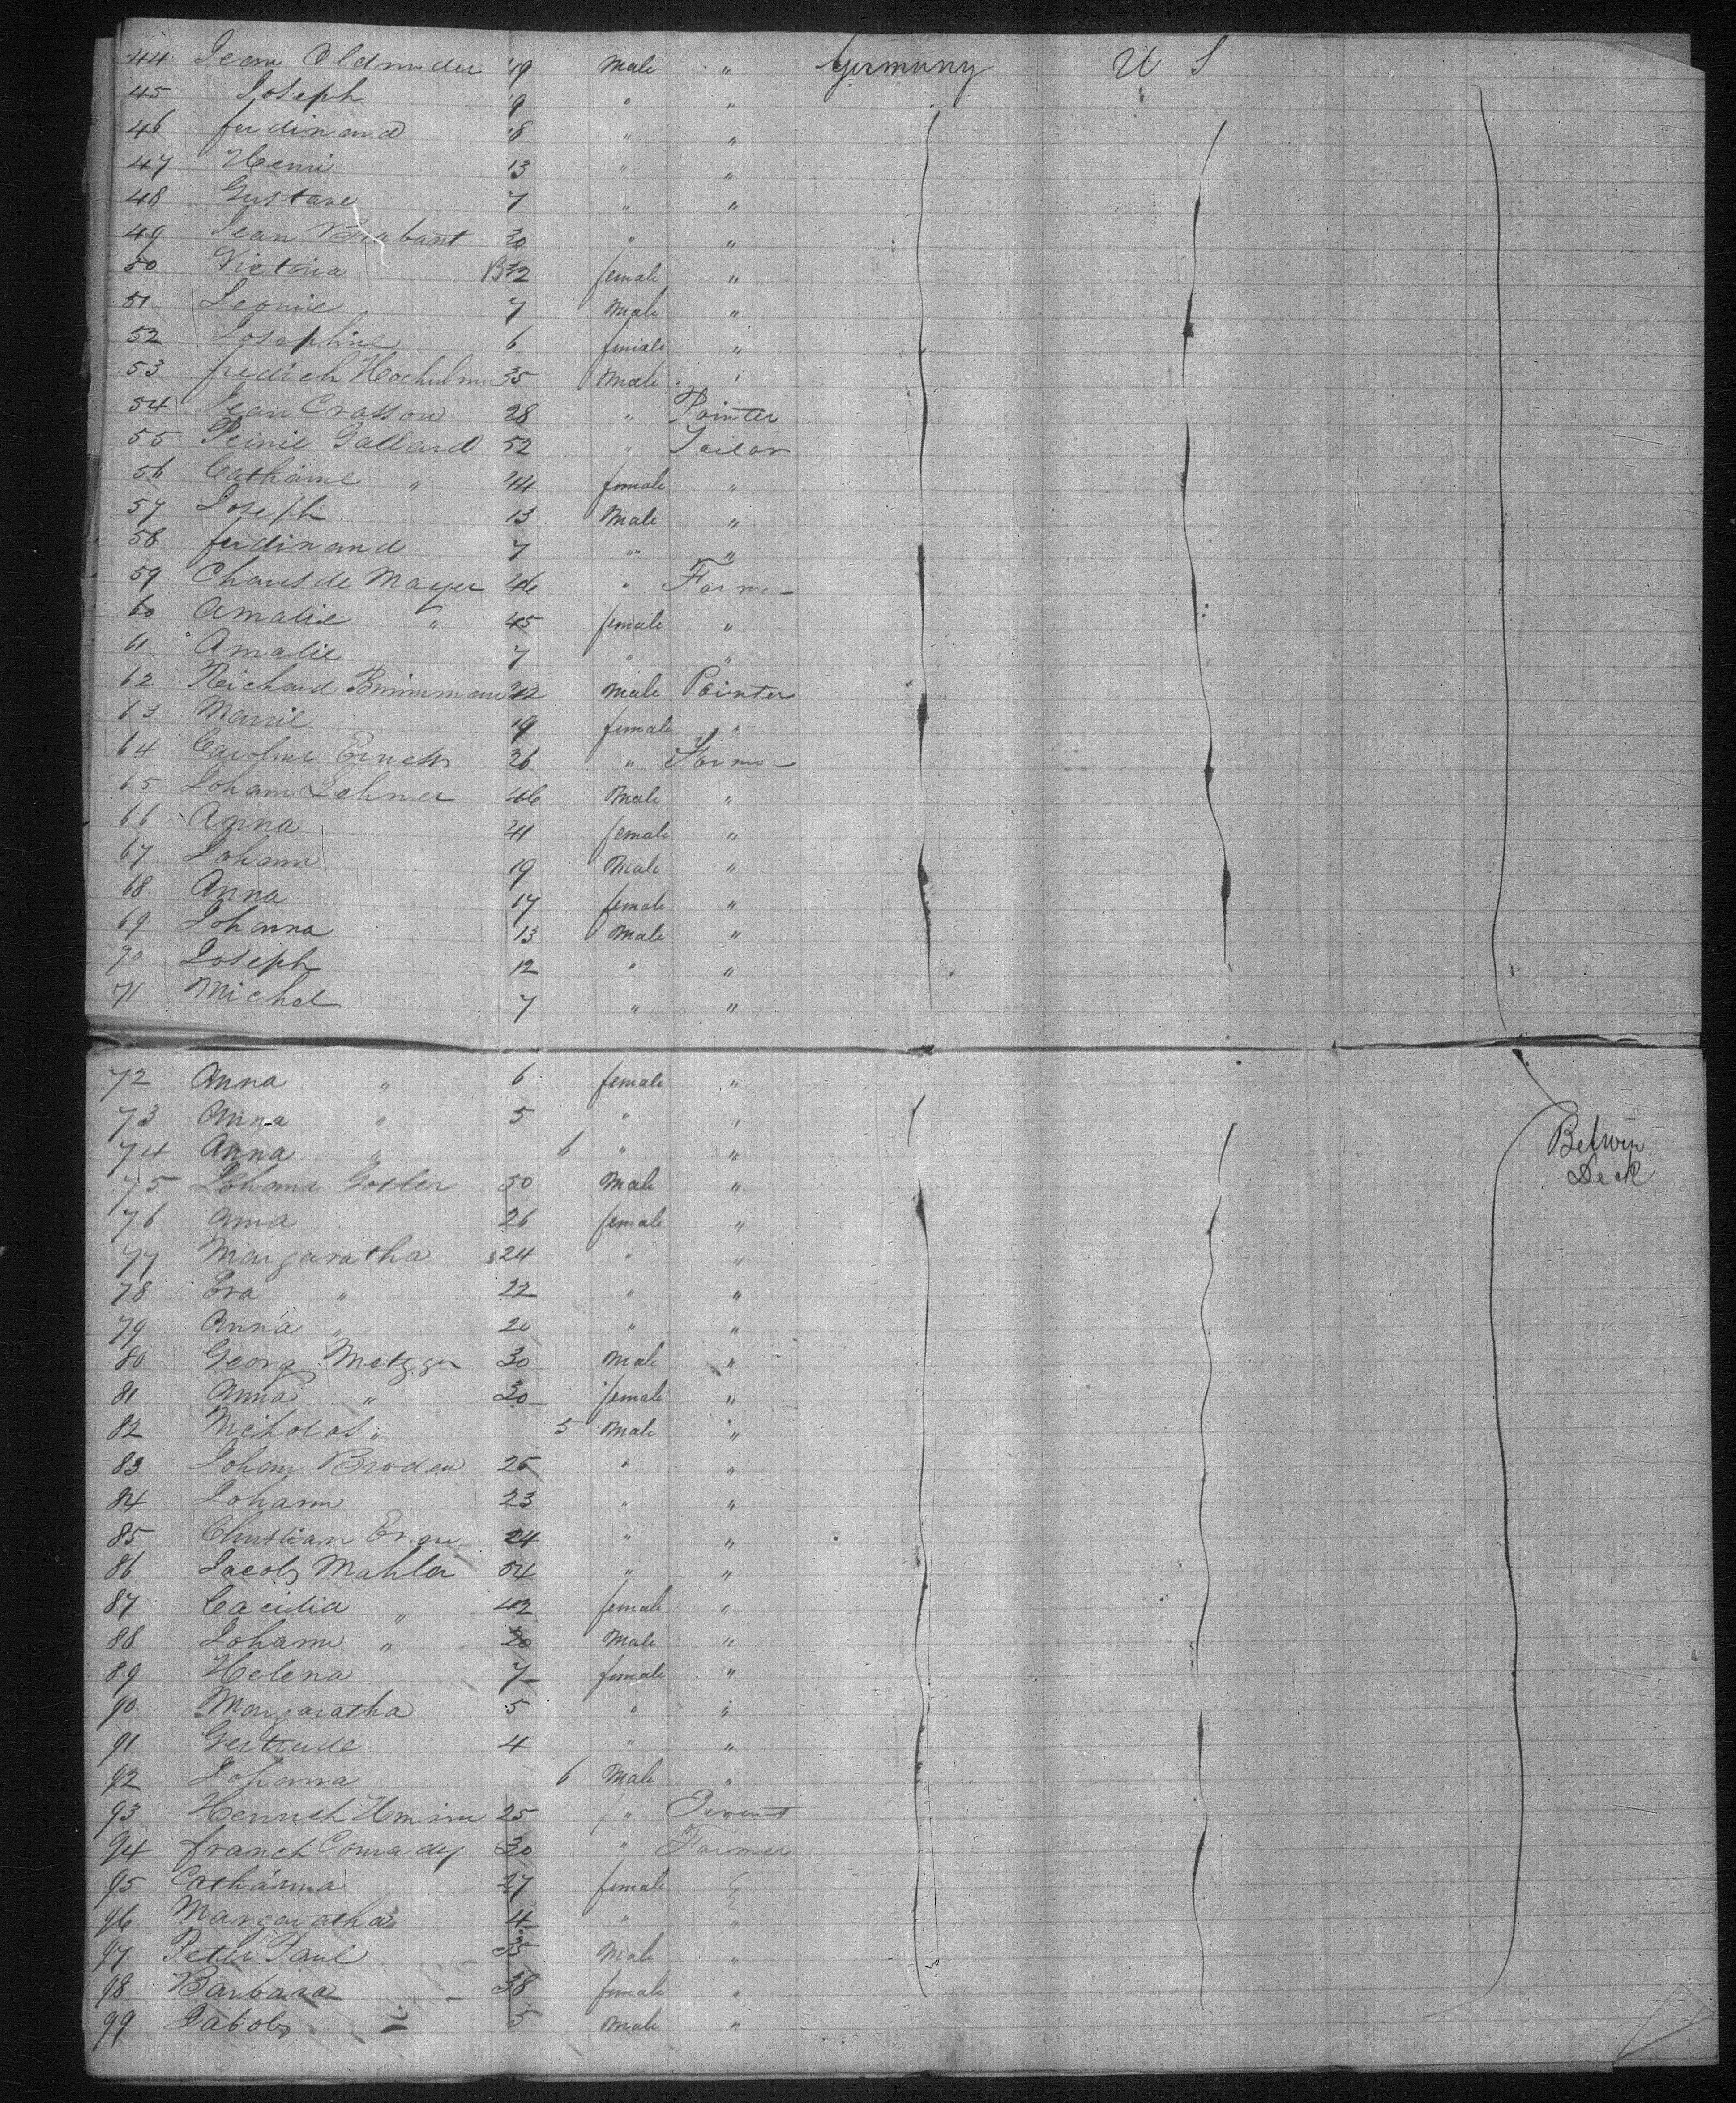 44 Jean Oldmuder 49 Male " Germany U S
45 Joseph 19 " "
46 ferdinand 18 " "
47 Henri 13 " "
48 Gustave 7 " "
49 Jean Brabant 30 " "
50 Victoria 32 female "
51 Leonie 7 Male "
52 Josephine 6 female "
53 fredich 35 Male "
54 Jean Crasson 28 " Painter
55 Galland 52 " Teilor
56 Catharine " 44 female "
57 Joseph 13 Male "
58 ferdinand 7 " "
59 Mayer 46 " Farmer
60 Amalie " 45 female "
61 Amalie 7 " "
62 Reichard 22 Male Painter
63 Marrie 19 female "
64 Caroline 26 " Farmer
65 Joham Lehner 46 Male "
66 Anna 41 female "
67 Johann 19 Male "
68 Anna 17 female "
69 Johanna 13 Male "
70 Joseph 12 " "
71 Michel 7 " "
72 Anna " 6 female "
73 Anna " 5 " "
74 Anna " 6 " "
Betwen
Deck
75 Johanna Gosler 50 Male "
76 Anna 26 female "
77 Margaratha 24 " "
78 Eva " 22 " "
79 Anna " 20 " "
80 Georg Metzger 30 Male "
81 Anna " 30 female "
82 Nicholas " 5 Male "
83 Joham Broden 25 " "
84 Johann 23 " "
85 Christian 24 " "
86 Jacob Mahler 54 " "
87 Cacidia " 42 female "
88 Johann " 20 Male "
89 Helena 7 female "
90 Margaratha 5 " "
91 Gertrude 4 " "
92 Johanna 6 Male "
93 25 "
94 franch Comady 30 " Farmer
95 Catharina 27 female "
96 Margaratha 4 " "
97 Peter Paul 35 Male "
98 Barbara 38 female "
99 Jakob 5 Male "